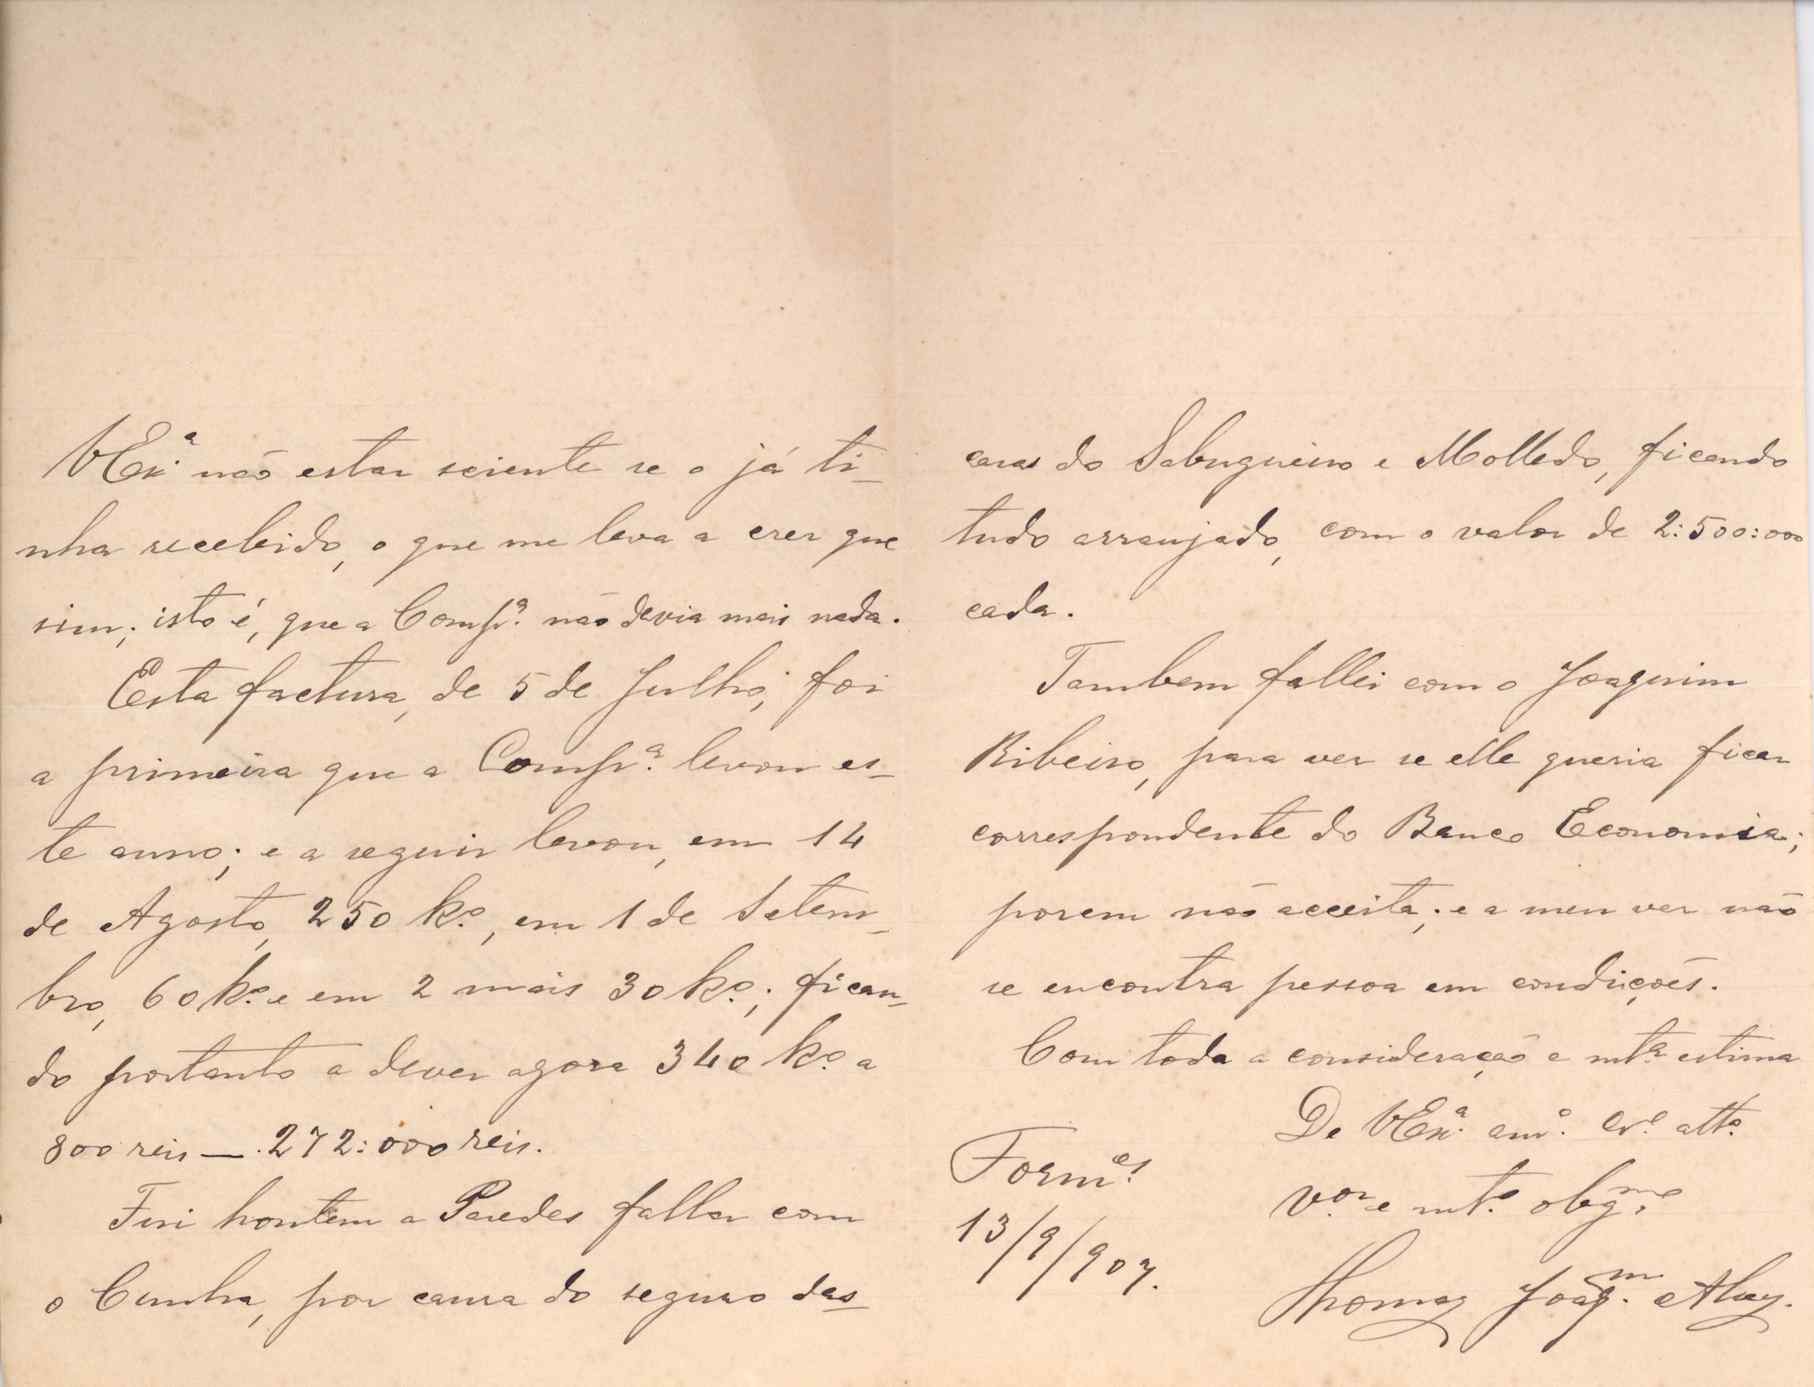 VExª não estar sciente se o já ti-
nha recebido, o que me leva a crer que
sim; isto é, que a Compª. não devia mais nada.
Esta factura, de 5 de Julho, foi
a primeira que a Compª. levou es-
te anno; e a seguir levou, em 14
de Agosto, 250 kº., em 1 de Setem-
bro, 60 kº. e em 2 mais 30 kº.; fican-
do portanto a dever agora 340 kº. a
800 reis — 272:000 reis.
Fui hontem a Paredes fallar com
o Cunha, por causa do seguro das
casas do Sabugueiro e Molledo, ficando
tudo arranjado, com o valor de 2:500:000
cada.
Tambem fallei com o Joaquim
Ribeiro, para ver se elle queria ficar
correspondente do Banco Economia;
porem não acceita; e a meu ver não
se encontra pessoa em condições.
Com toda a consideração e mtª. estima
De VExª. amº. crº. attº.
Vor. e mtº. obgmº.
Formes.
13/9/907.
Thomaz Joaqm. Alvez.